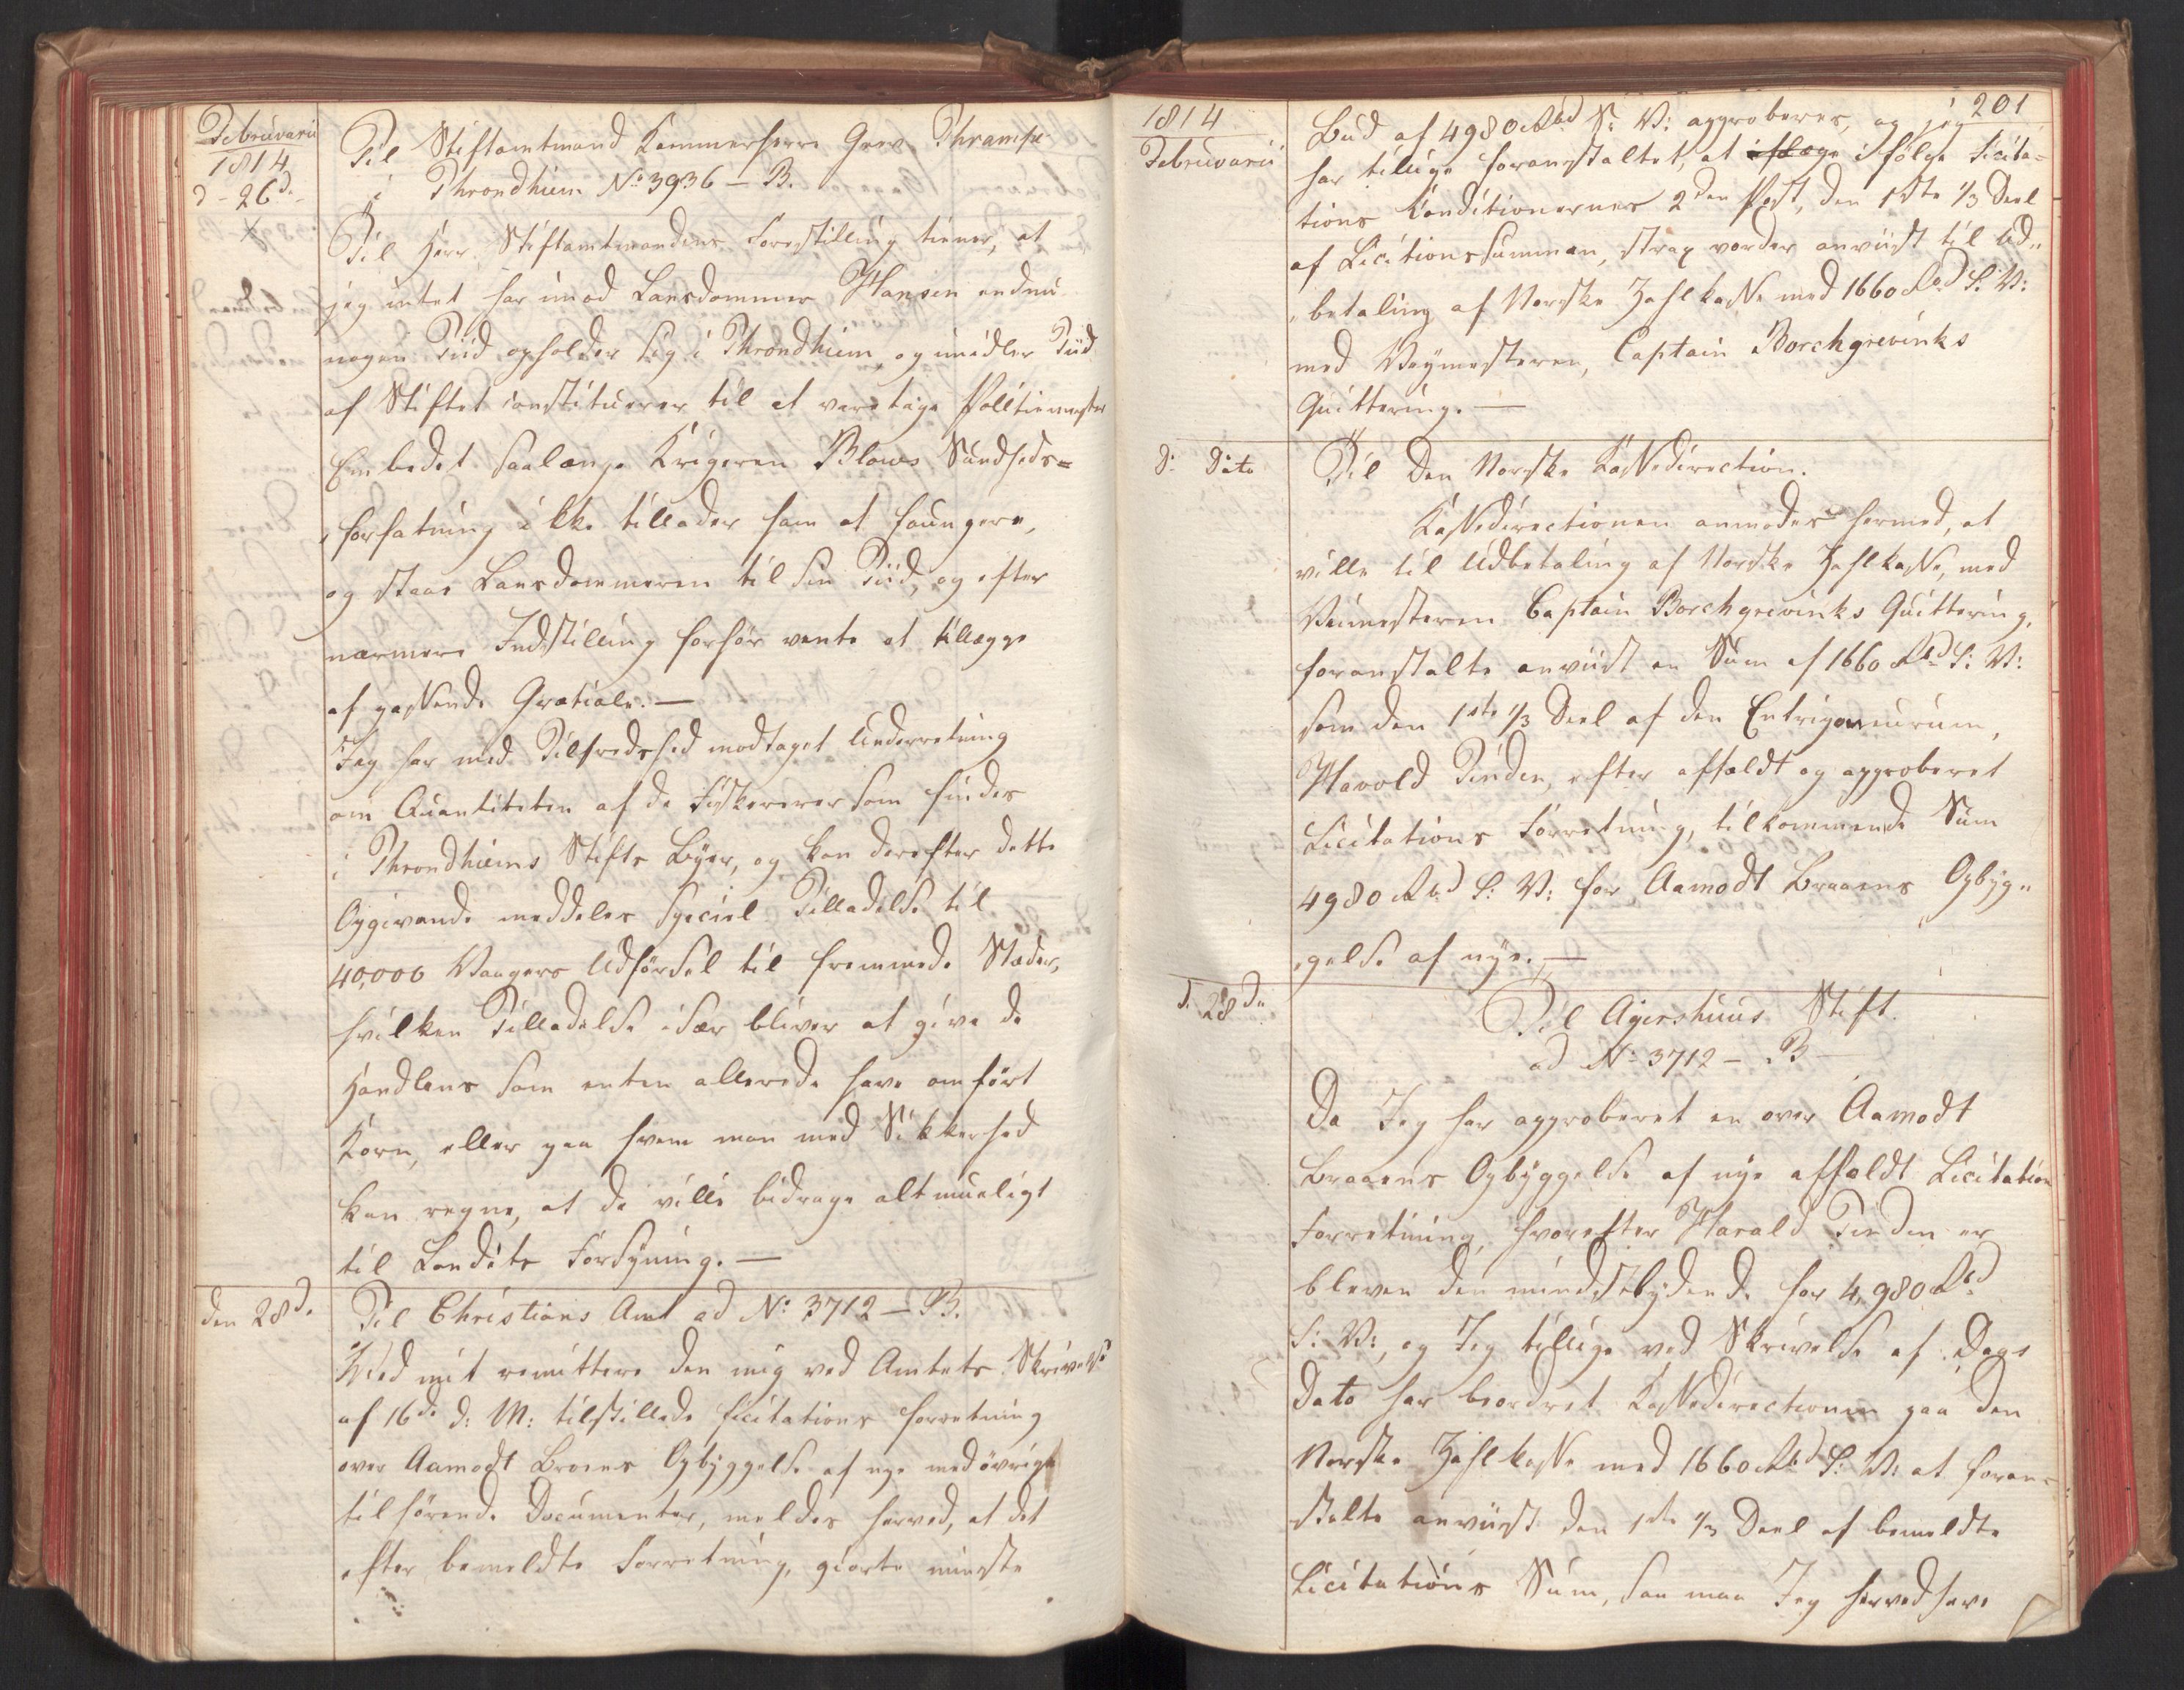 Februarii
1814
d. 26de
Til Stiftamtmand Kammerherre Grev Thrampe
i Throndhiem No 3936 - B.
Til Herr Stiftamtmandens Forestilling tiener, at
jeg intet har imod Laugdommer Hansen endnu
nogen Tiid opholder sig i Throndhiem, og imidler Tiid
af Stiftet constitueres til at varetage Politiemester
Embedet saalænge Krigsraad Blows Sundheds=
forfatning ikke tillader ham at foungere,
og staar Laugdommeren til sin Tiid, og efter
nærmere Indstilling herfor vente at tillægges
et passende Gratiale. —
Jeg har med Tilfredshed modtaget Underretning
om Quantiteten af de Fiskevarer som findes
i Throndhiems Stifts Byer, og kan derefter dette
Opgivende meddeles Speciel Tilladelse til
40,000 Vaagers Udførsel til fremmede Stæder,
hvilken Tilladelse især bliver at give de
Handlens som enten allerede have omført
Korn, eller paa hvem man med Sikkerhed
kan regne, at de ville bidrage alt mueligt
til Landets Forsyning. —
den 28de
Til Christians Amt ad No 3712 - B.
Ved mit remittere den mig ved Amtets Skrivelse
af 16de d: M: tilstillede Licitations Forretning
over Aamodt Broens Opbyggelse af nye med øvrige
tilhørende Documenter, meldes herved, at det
efter bemeldte Forretning, giorte mindste
1814
Februarii
201
Bud af 4980 Rbd S: V: approberes, og jeg
har tillige foranstaltet, at ifølge Licita=
tions Konditionernes 2den Post, den 1ste 1/3 Deel
af Licitionssummen, strax vorder anviist til Ud„
betaling af Norske Zahlkasse med 1660 Rbd S: V:
med Veymesteren, Captain Borchgrevinks
Quittering. —
d: Dito
Til Den Norske Kassedirection.
Kassedirectionen anmodes hermed, at
ville til Udbetaling af Norske Zahlkasse, med
Veimesteren Captain Borchgrevinks Quittering,
foranstalte anviist en Sum af 1660 Rbd S: V:
som den 1ste 1/3 Deel af den Entrigoneurium,
Harold Tinden, efter afholdt og approberet
Licitations Forretning, tilkommende Sum
4980 Rbd S: V: for Aamodt Broens Opbyg„
gelse af nye. —
d. 28de
Til Agershuus Stift.
ad No 3712 - B
Da Jeg har approberet en over Aamodt
Broens Opbyggelse af nye afholdt Licitation
Forretning, hvorefter Harald Tinden er
bleven den mindstbydende for 4,980 Rbd
S: V:, og Jeg tillige ved Skrivelse af Dags
Dato har beordret Kassedirectionen paa den
Norske Zahlkasse med 1660 Rbd S: V: at foran=
stalte anviist den 1ste 1/3 Deel af bemeldte
Licitations Sum, saa maa Jeg herved have